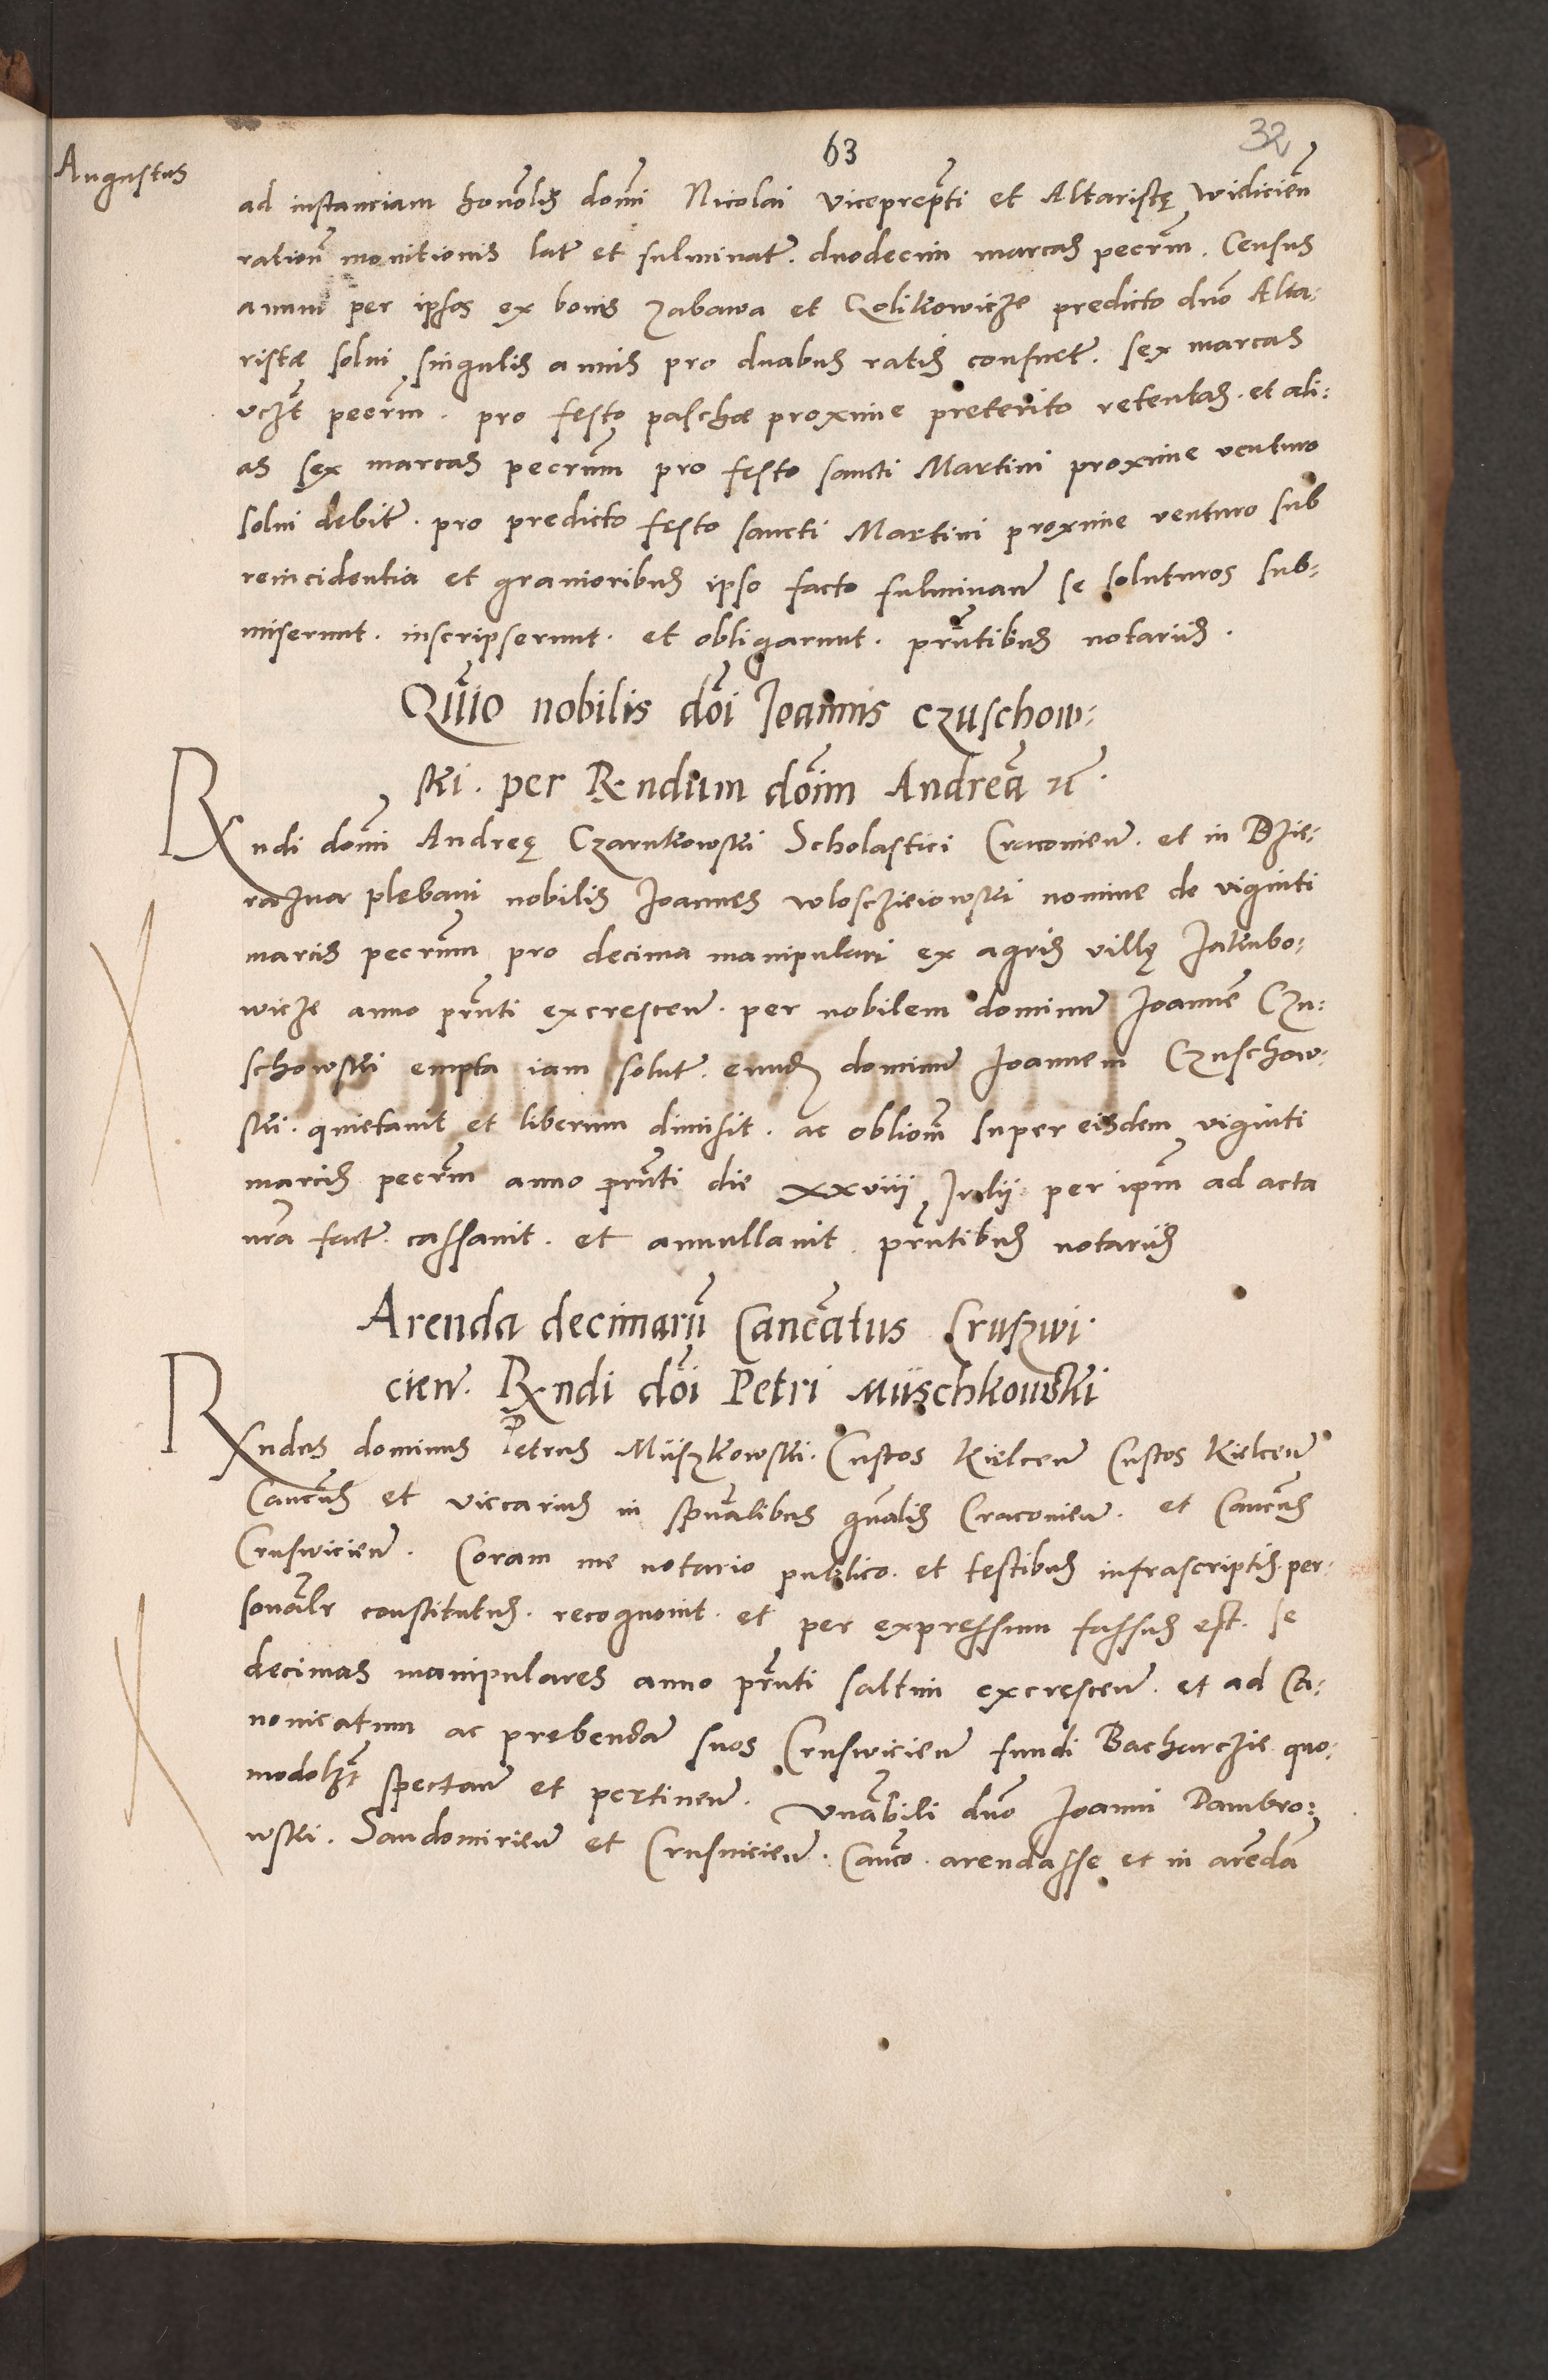 63
32
Augustus
ad instanciam honorabilis domini Nicolai viceprepositi et Altaristę Wislicien
ration monitionis lat et fulminat. duodecim marcas pecrm. Census
annui per ipsos ex bonis Zabawa et Qolikowicze predicto dno Alta:
ristæ solui singulis annis pro duabus ratis consuet. sex marcas
vczt pecrm. pro festo paschæ proxime preterito retentas. et ali:
as sex marcas pecrum pro festo sancti Martini proxime venturo
solui debit. pro predicto festo sancti Martini proxime venturo sub
reincidentia et grauioribus ipso facto fulminan se soluturos sub:
miserunt. inscripserunt. et obligarunt. prntibus notariis.
Quiio nobilis doi Ioannis Czuschow:
ski. per Rndum doim Andrea zc.
Rndi domi Andreę Czarnkowski Scholastici Cracouien. et in Dzie:
razna plebani nobilis Ioannes Wlosczieiowski nomine de viginti
marcis pecrum pro decima manipulari ex agris villę Jakubo:
wicze anno prnti excrescen. per nobilem dominum Ioannem Czu:
schowski empta iam solut. eundem dominum Ioannem Czuschow:
ski. quietauit et liberum dimisit. ac obliom super eisdem viginti
marcis pecrm anno prnti die xxviii Iulii per ipm ad acta
nra fact. cassauit. et annullauit. prntibus notariis
Arenda decimaru Cancatus Cruszwi:
cien. Rndi doi Petri Müschkowski
Rndus dominus Petrus Müszkowski. Custos Kielcen Custos Kielcen
Cancus et viccarius in spualibus gnalis Cracouien. et Cancus
Cruswicien. Coram me notario publico. et testibus infrascriptis per:
sonalr constitutus. recognouit. et per expressum fassus est. se
decimas manipulares anno prnti saltim excrescen. et ad Ca:
nonicatum ac prebendam suos Cruswicien fundi Bacharczie quo:
modolzt spectan et pertinen. Vnabili dno Ioanni Dambro:
wski. Sandomirien et Crusuicien. Canco. arendasse et in arenda